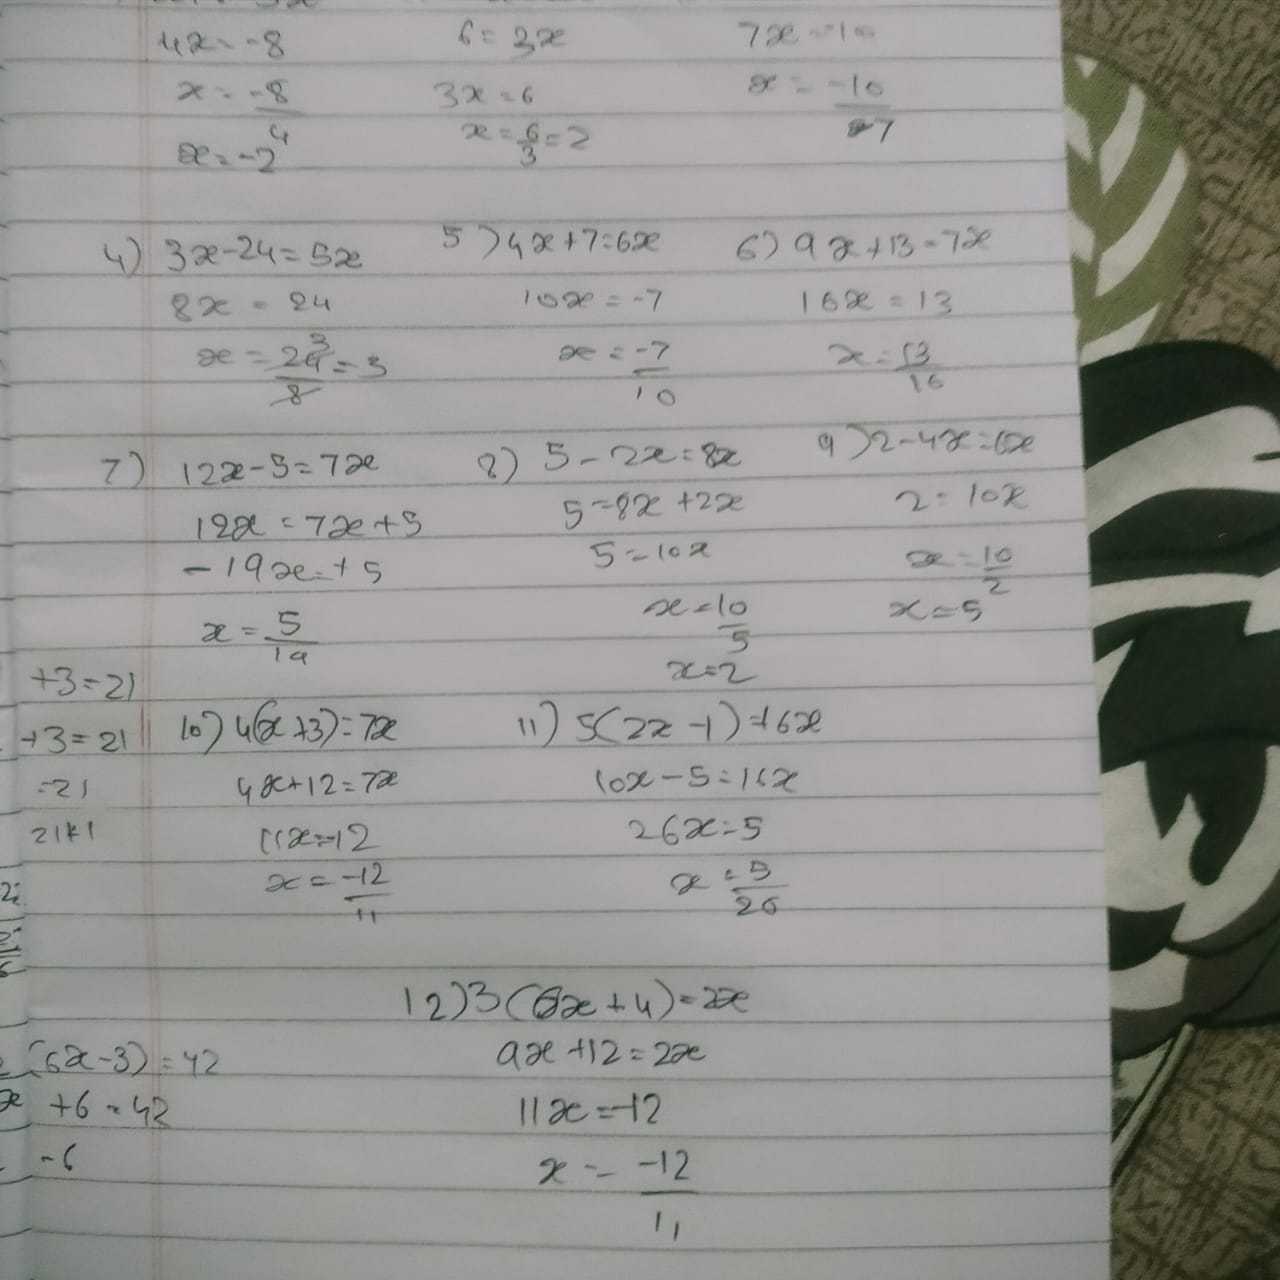 4x = -8
x = -8/4
x = -2
6 = 3x
3x = 6
x = 6/3 = 2
7x = -10
x = -10/7
4) 3x-24 = 5x
8x = 24
x = 24/8 = 3
5) 4x+7 = 6x
10x = -7
x = -7/10
6) 9x+13 = 7x
16x = 13
x = 13/16
7) 12x-5 = 7x
12x = 7x+5
-19x = +5
x = 5/19
8) 5-2x = 8x
5 = 8x+2x
5 = 10x
x = 10/5
x = 2
9) 2-4x = 6x
2 = 10x
x = 10/2
x = 5
10) 4(x+3) = 7x
4x+12 = 7x
11x = -12
x = -12/11
11) 5(2x-1) = 16x
10x-5 = 16x
26x = 5
x = 5/26
12) 3(3x+4) = 2x
9x+12 = 2x
11x = -12
x = -12/11
+3 = 21
+3 = 21
= 21
(6x-3) = 42
+6 = 42
-6